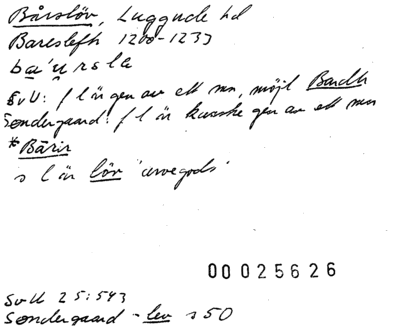 Bårslöv, Luggude hd
Bareslefh 1200-1233
ba'ursle
SvU: f l är gen av ett mn, möjl Bardh
Søndergaard: f l är kanske gen av ett mn
*Bārir
s l är löv 'arvegods'
00025626
SvU 25:543
Søndergaard - lev s 50